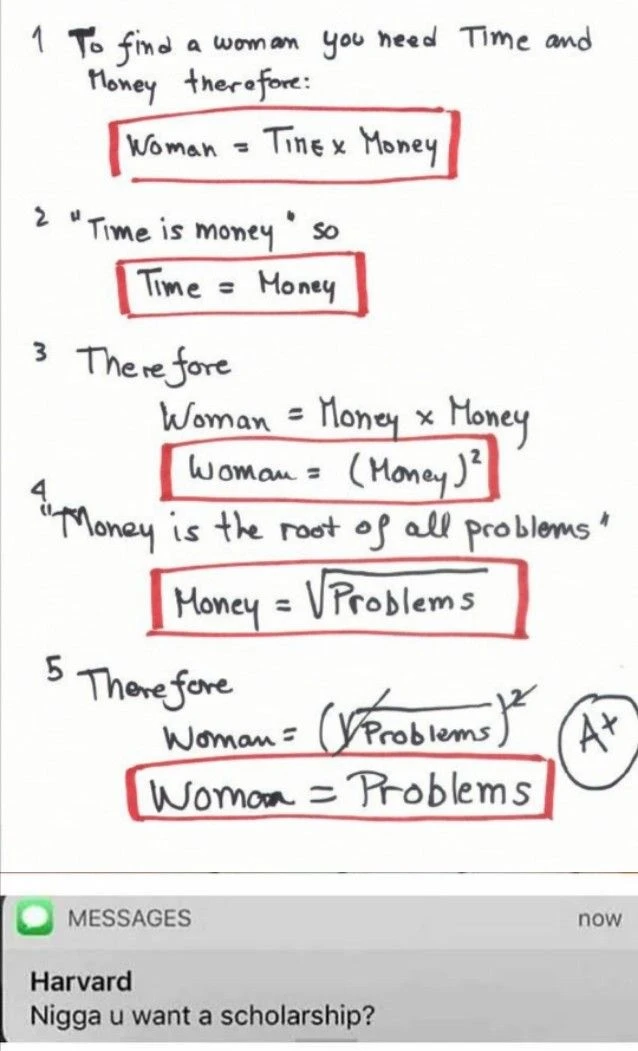 1 To find a woman you need Time and
Money therefore:
Woman = Time x Money
2 "Time is money" so
Time = Money
3 Therefore
Woman = Money x Money
Woman = (Money)²
4
"Money is the root of all problems"
Money = √Problems
5 Therefore
Woman = (√Problems)²
A+
Woman = Problems
MESSAGES now
Harvard
Nigga u want a scholarship?